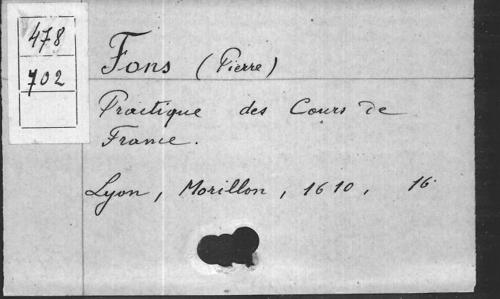 478
702
Fons (Pierre)
Practique des Cours de
France.
Lyon, Morillon, 1610, 16